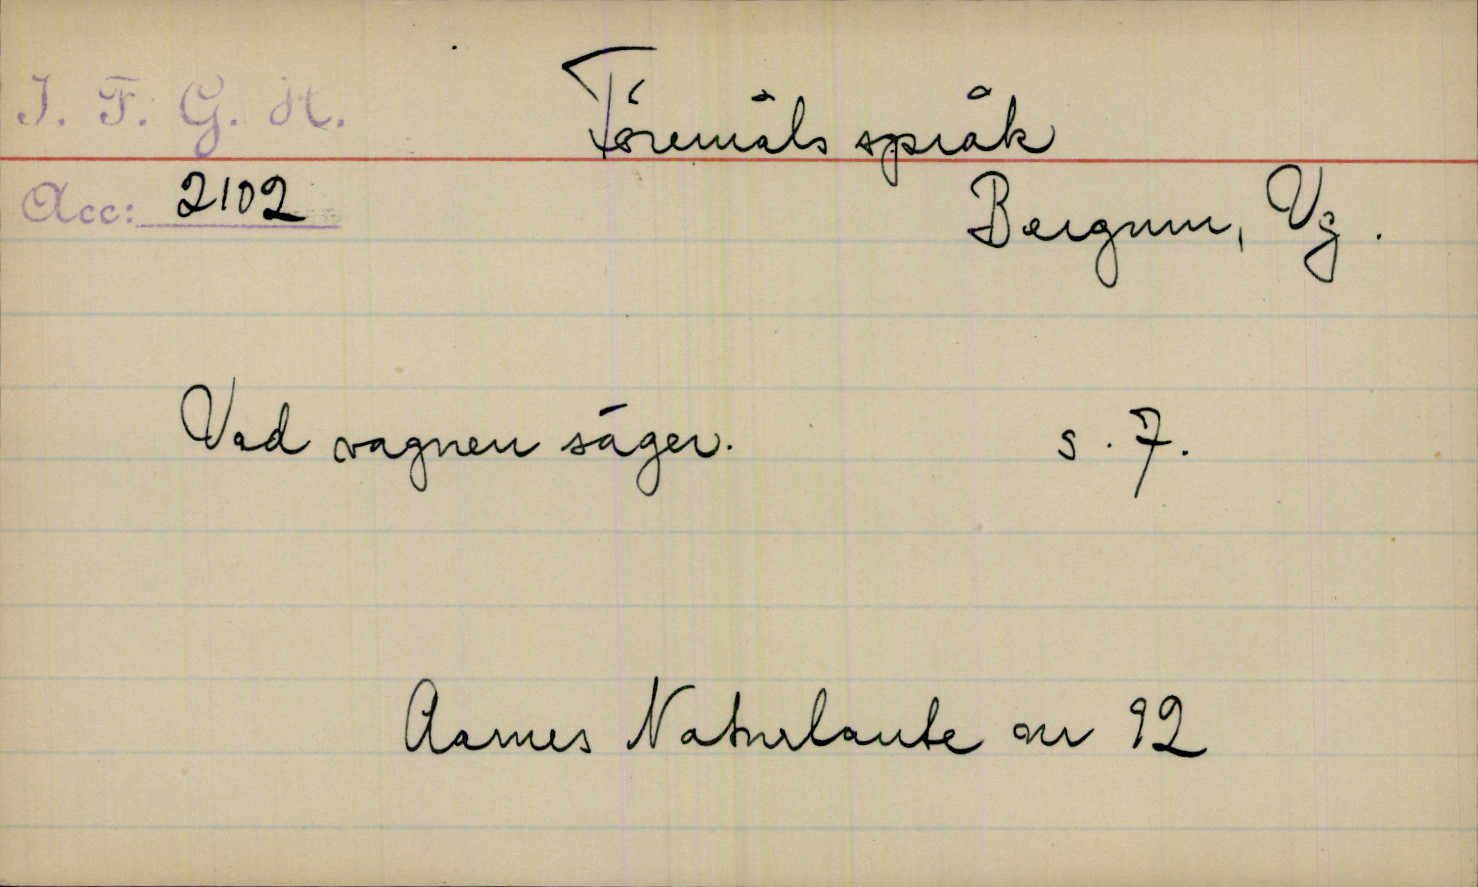 I. F. G. H.
Föremåls språk
Acc: 2102
Bergum, Vg.
Vad vagnen säger. s. 7.
Aarnes Naturlaute nr 92